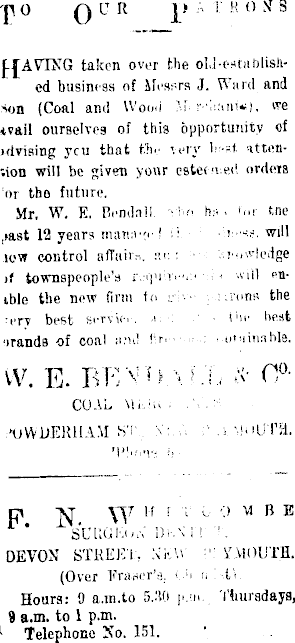 TO OUR PATRONS
HAVING taken over the old-establish-
ed business of Messrs J. Ward and
Son (Coal and Wood Merchants), we
avail ourselves of this opportunity of
advising you that the very best atten-
tion will be given your esteemed orders
for the future.
Mr. W. E. Bendall, who has for the
past 12 years managed the business, will
now control affairs, and knowledge
of townspeople's requirements will en-
able the new firm to give patrons the
very best service, the best
brands of coal and firewood obtainable.
W. E. BENDALL & CO.
COAL MERCHANTS
POWDERHAM ST., NEW PLYMOUTH.
'Phone
F. N. WHITCOMBE
SURGEON DENTIST,
DEVON STREET, NEW PLYMOUTH.
(Over Fraser's, Chemist).
Hours: 9 a.m. to 5.30 p.m. Thursdays,
9 a.m. to 1 p.m.
Telephone No. 151.